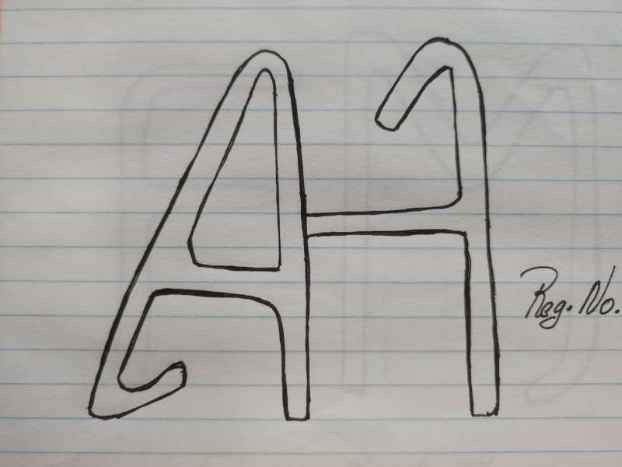 AH
Reg. No.